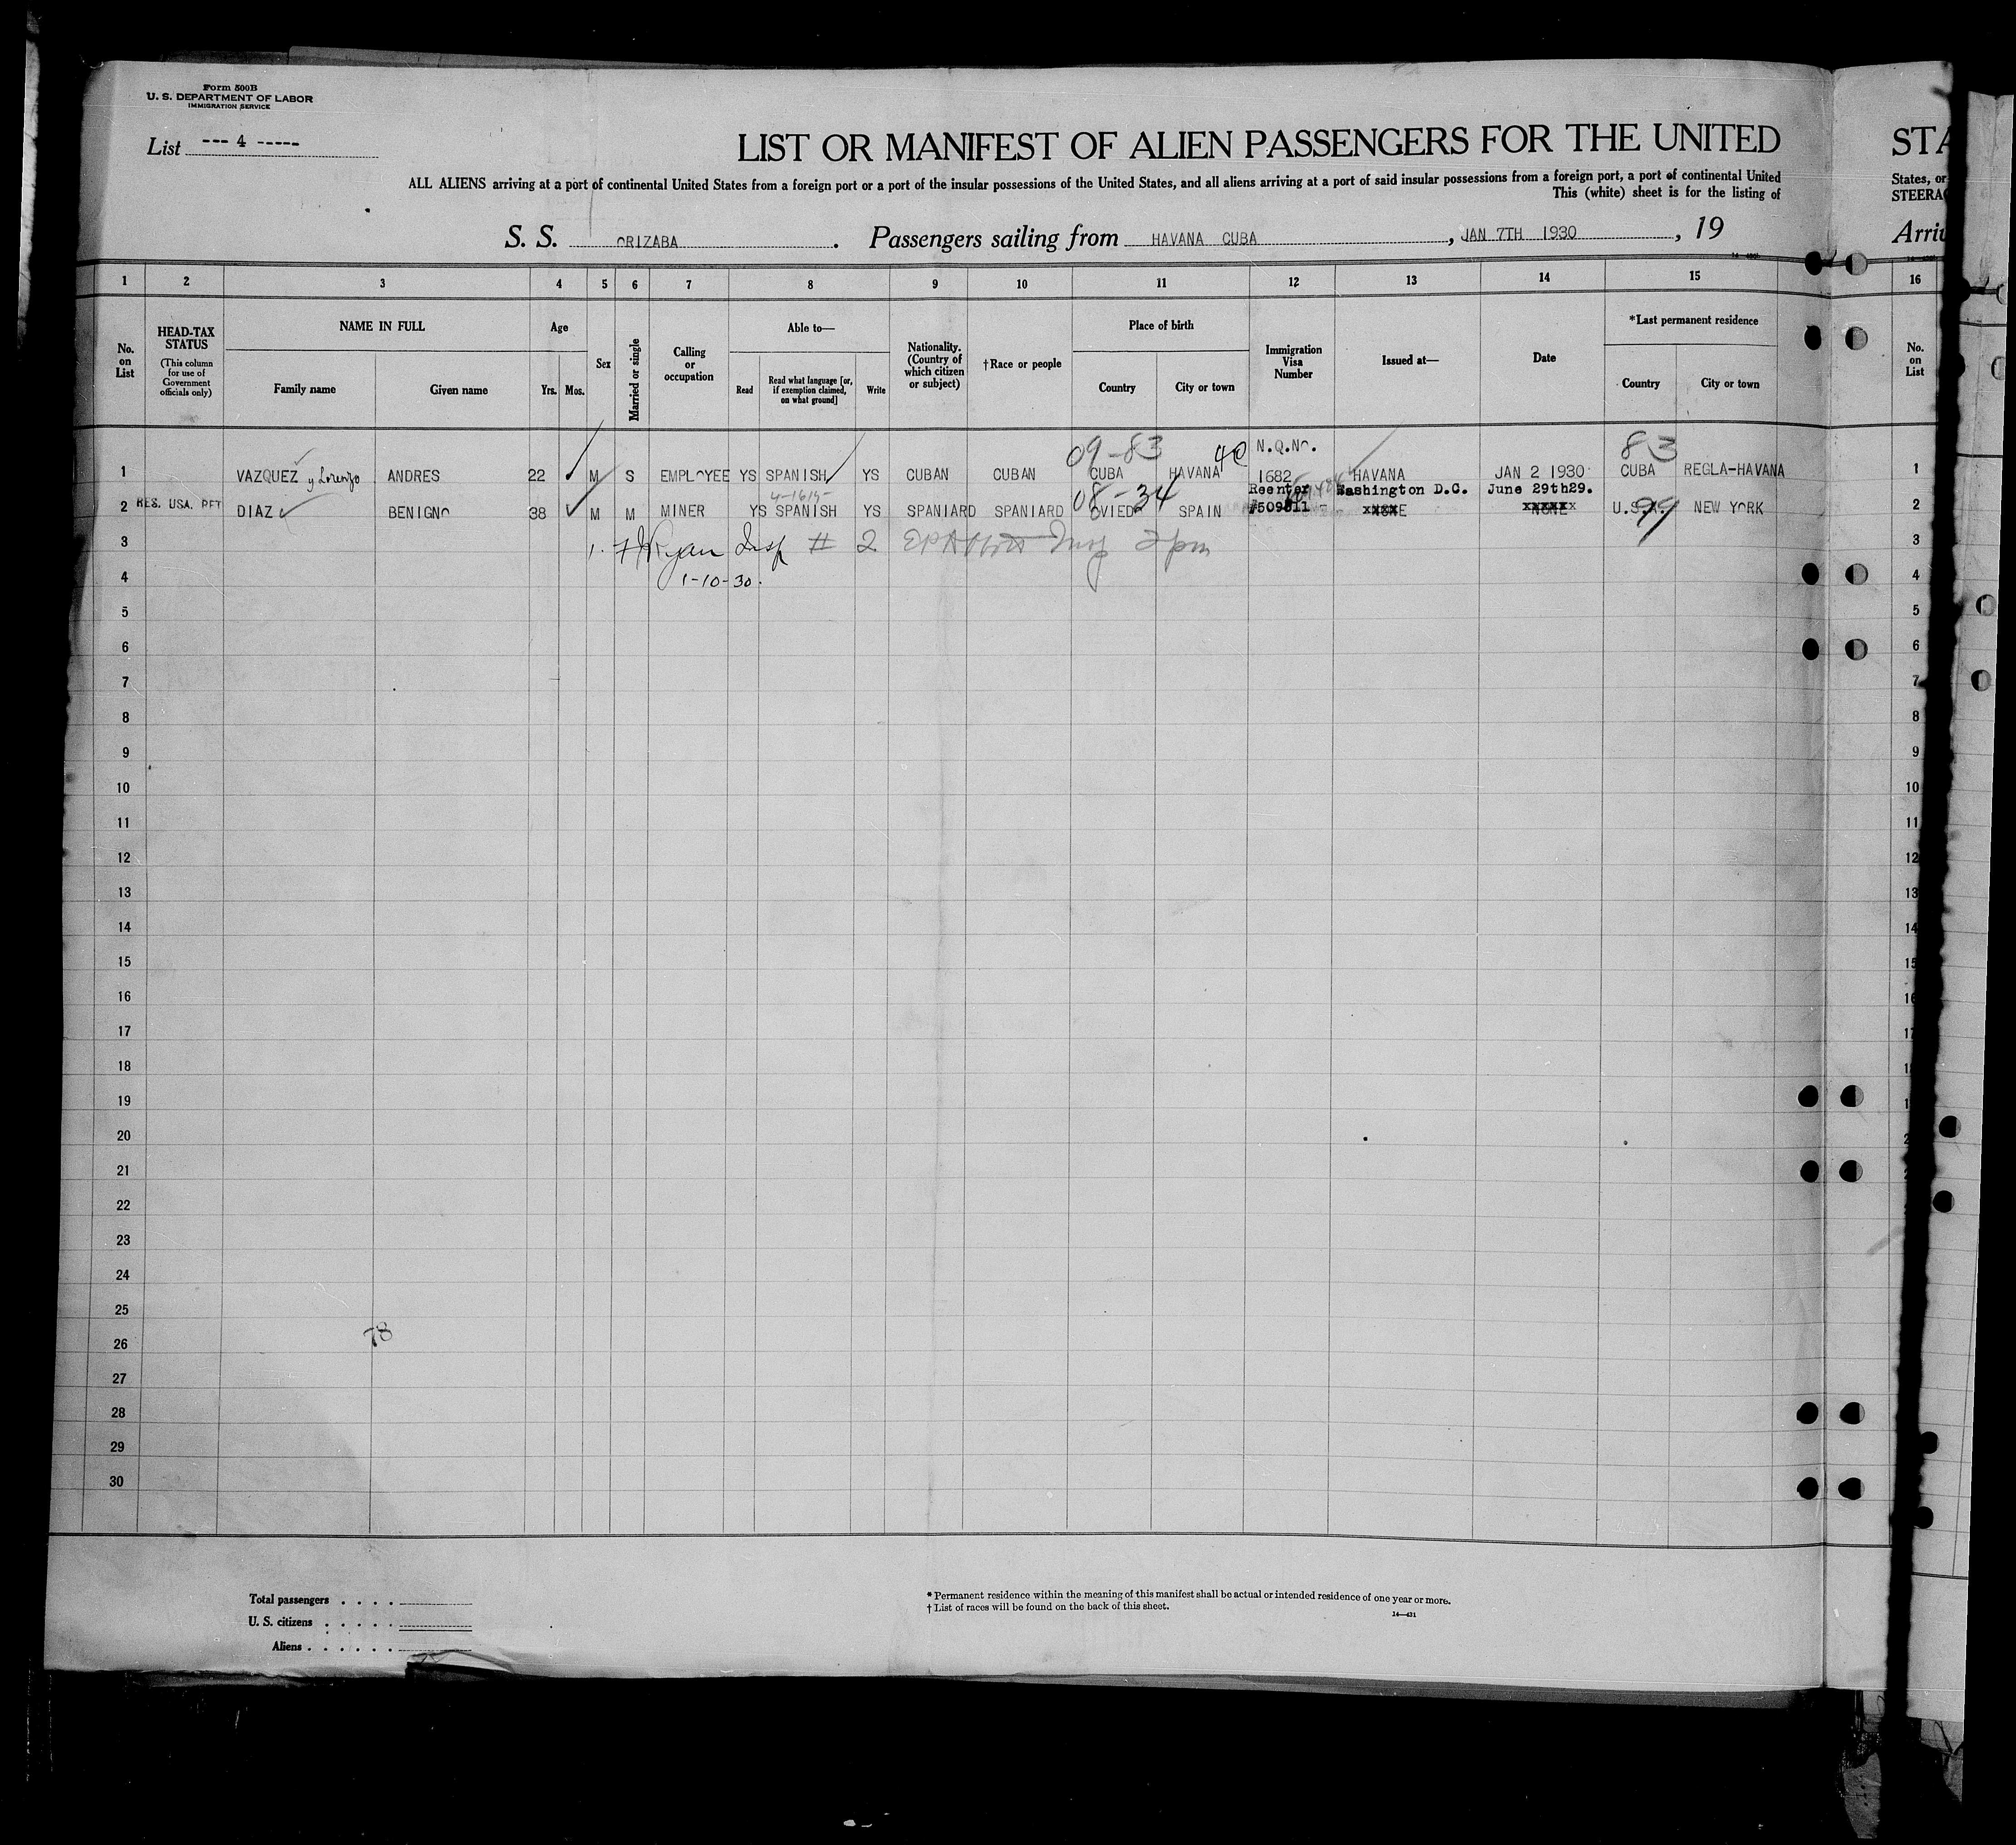 Form 500B
U. S. DEPARTMENT OF LABOR
IMMIGRATION SERVICE
List --- 4 -----
LIST OR MANIFEST OF ALIEN PASSENGERS FOR THE UNITED
STA
ALL ALIENS arriving at a port of continental United States from a foreign port or a port of the insular possessions of the United States, and all aliens arriving at a port of said insular possessions from a foreign port, a port of continental United
States, or
This (white) sheet is for the listing of
STEERA
S. S. ORIZABA. Passengers sailing from HAVANA CUBA, JAN 7TH 1930, 19
Arri
1 2 3 4 5 6 7 8 9 10 11 12 13 14 15 16
No. on List
HEAD-TAX STATUS
(This column for use of Government officials only)
NAME IN FULL
Family name
Given name
Age
Yrs. Mos.
Sex
Married or single
Calling or occupation
Able to—
Read
Read what language [or, if exemption claimed, on what ground]
Write
Nationality. (Country of which citizen or subject)
†Race or people
Place of birth
Country
City or town
Immigration Visa Number
Issued at—
Date
*Last permanent residence
Country
City or town
No. on List
09-83 40 N.Q.No. 83
1 VAZQUEZ y Lorenzo ANDRES 22 M S EMPLOYEE YS SPANISH YS CUBAN CUBAN CUBA HAVANA 1682 HAVANA JAN 2 1930 CUBA REGLA-HAVANA 1
4-1615- 08-34 Reenter Washington D.C. June 29th29.
2 RES. USA. DIAZ BENIGNO 38 M M MINER YS SPANISH YS SPANIARD SPANIARD OVIEDO SPAIN NONE NONE U.S.A. 99 NEW YORK 2
3 1. Ryan Insp # 2 2pm 3
4 1-10-30. 4
5 5
6 6
7 7
8 8
9 9
10 10
11 11
12 12
13 13
14 14
15 15
16 16
17 17
18
19
20
21
22
23
24
25
78
26
27
28
29
30
Total passengers . . . .
U. S. citizens . . . . .
Aliens . . . . . .
* Permanent residence within the meaning of this manifest shall be actual or intended residence of one year or more.
† List of races will be found on the back of this sheet.
14—431